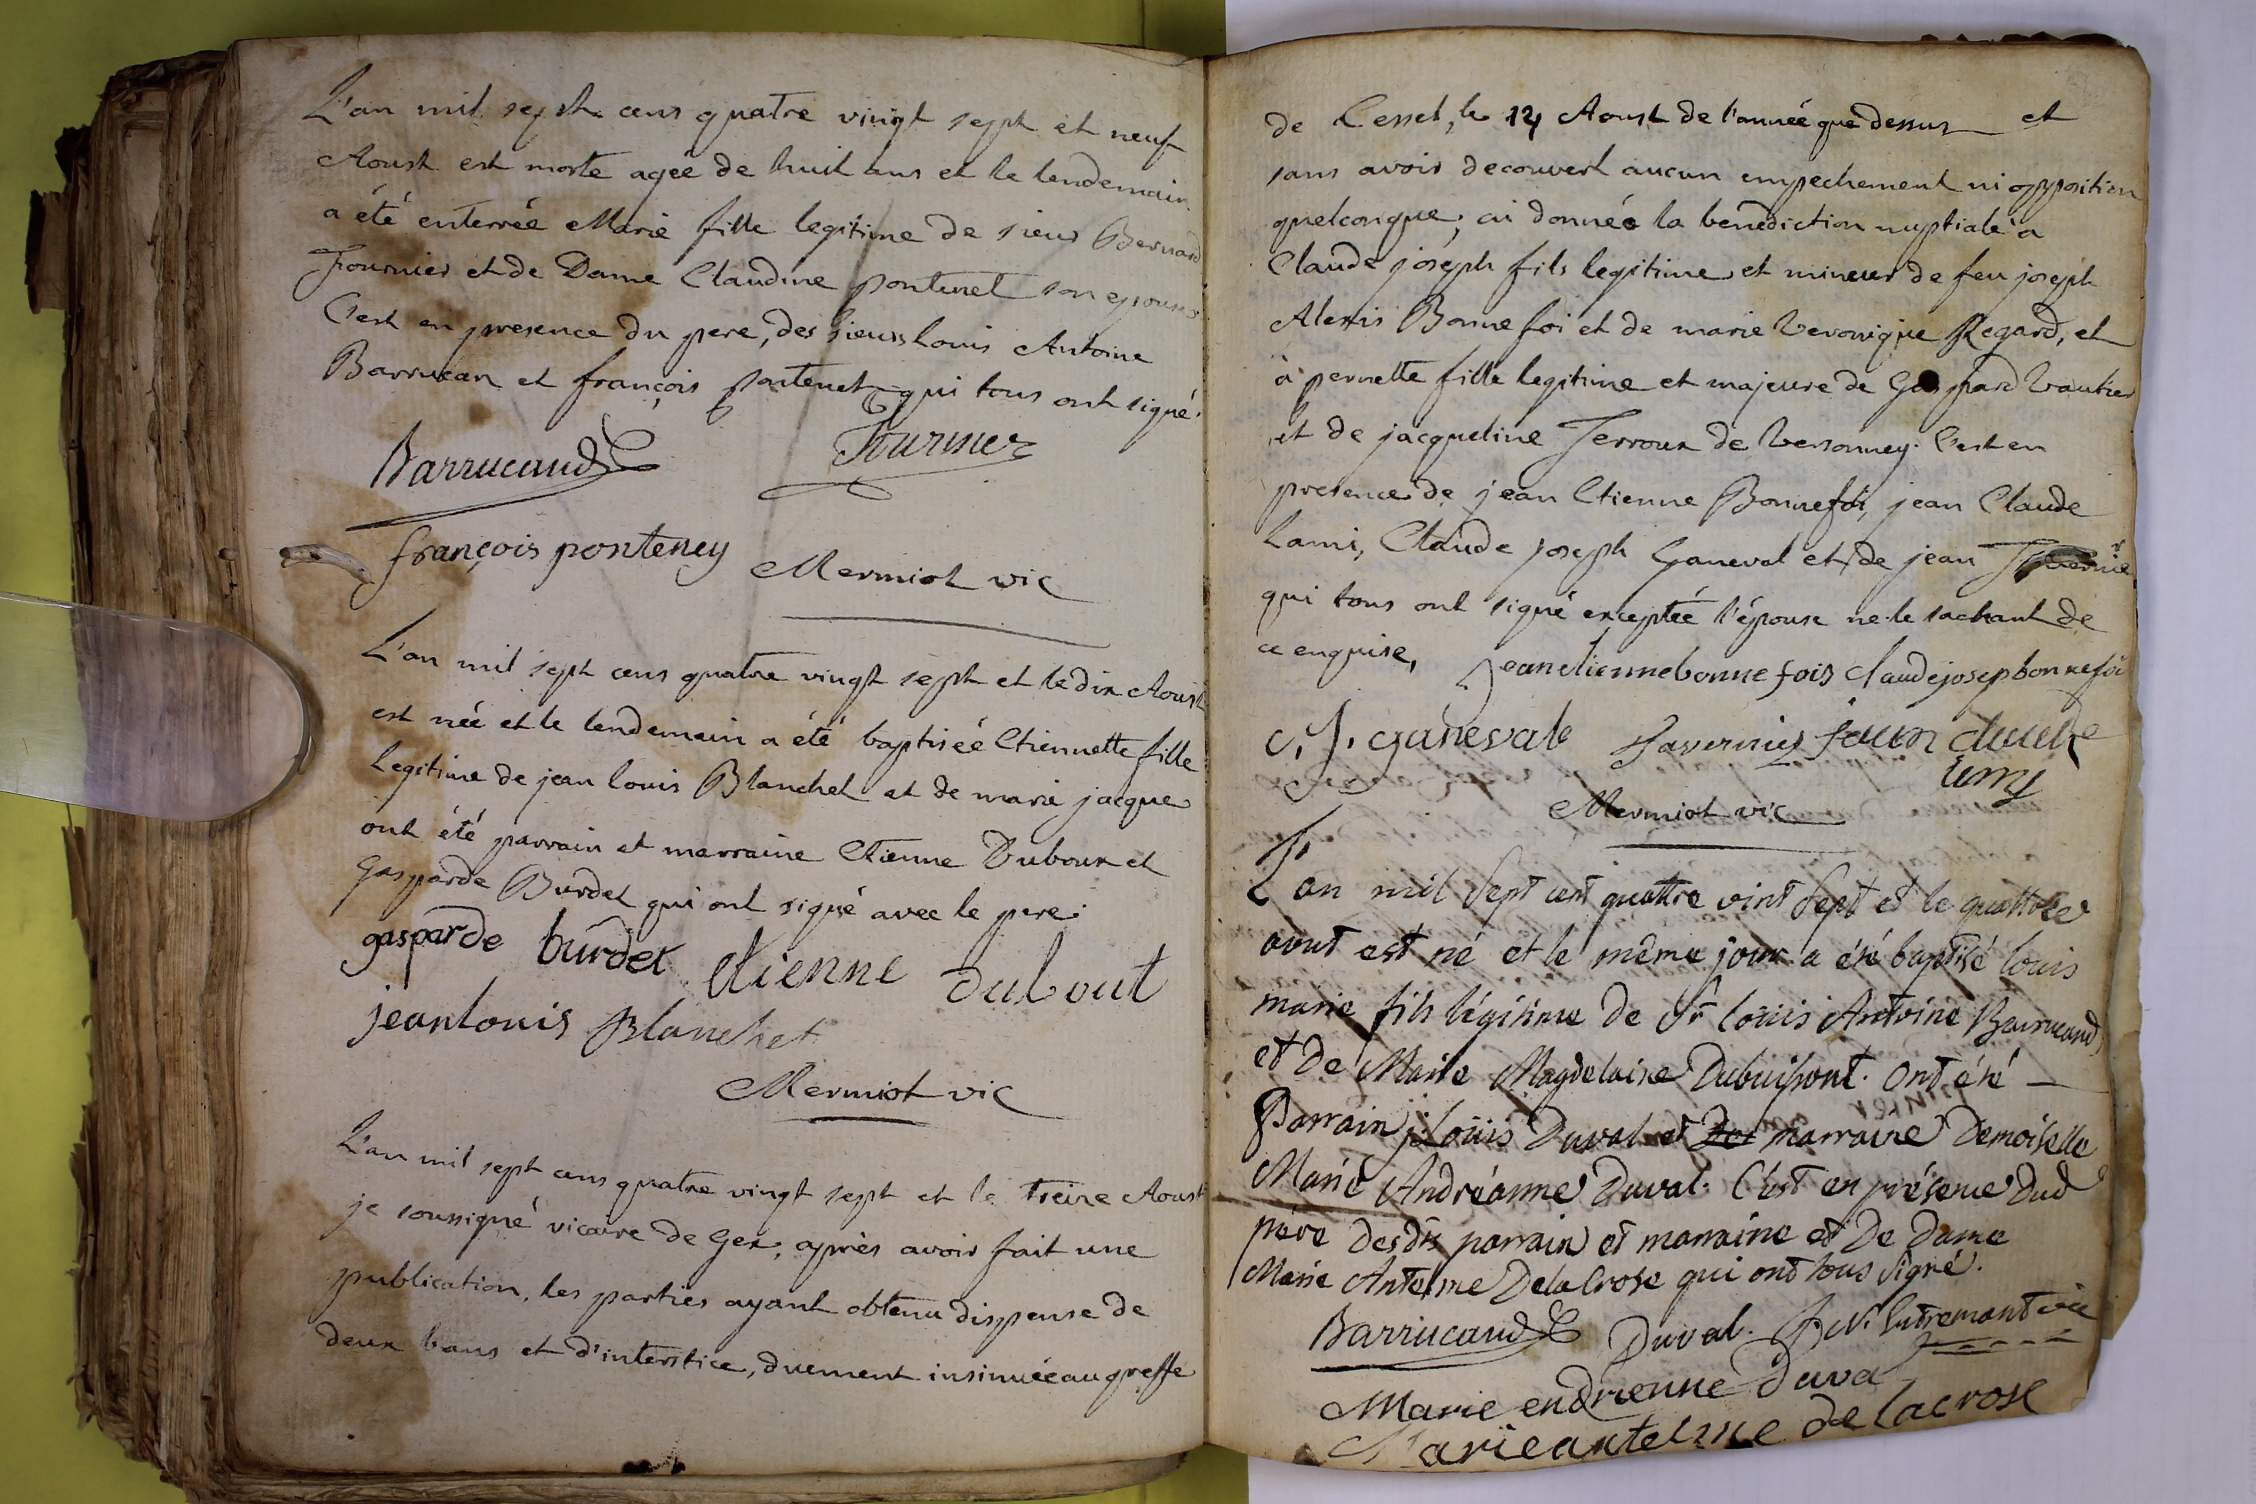 L'an mil sept cens quatre vingt sept et neuf
Aoust est morte agée de huit ans et le lendemain
a été enterrée Marie fille legitime de sieur Bernard
Fournier et de Dame Claudine pontenet son epouse
C'est en presence du pere, des sieurs Louis Antoine
Barrucan et françois pontenet qui tous ont signé.
Barrucaud Fournier
françois ponteney Mermiot vic
L'an mil sept cens quatre vingt sept et le dix Aoust
est née et le lendemain a été baptiséé Etiennette fille
legitime de jean louis Blanchet et de marie jacque
ont été parrain et marraine Etienne Duboux et
Gasparde Burdet qui ont signé avec le pere.
gasparde burdet etienne dubout
jeanlouis Blanchet
Mermiot vic
L'an mil sept cens quatre vingt sept et le treize Aoust
je soussigné vicaire de Gex, après avoir fait une
publication, les parties ayant obtenu dispense de
deux bans et d'interstice, duement insinuée au greffe
de Cesset, le 12 Aoust de l'année que dessus et
sans avoir decouvert aucun empechement ni opposition
quelconque, ai donnée la benediction nuptiale a
Claude joseph fils legitime et mineur de feu joseph
Alexis Bonnefoi et de marie Veronique Regard, et
à pernette fille legitime et majeure de Gaspard Vautier
et de jacqueline Terroux de Versonney. C'est en
presence de jean Etienne Bonnefoi, jean Claude
Lami, Claude joseph Ganeval et de jean
qui tous ont signé exceptéé l'épouse ne le sachant de
ce enquise, jeanetiennebonnefois Claudejosepbonnefoi
C. J. ganeval Tavernier jean claude
lamy
Mermiot vic
L'an mil Sept cent quattre vint Sept et le quattorze
aout est né et le même jour a été baptisé louis
marie fils légitime de Sr louis Antoine Barrucand
et de Marie Magdelaine Dubuisont. Ont été
Parrain j. Louis Duval et marraine Demoiselle
Marie Andréanne Duval. C'est en présence Dud
père desdts parrain et marraine et De Dame
Marie Antelme Delacrose qui ont tous signé.
Barrucaud Duval. vic
Marie endrienne duval
Marieantelme de lacrose